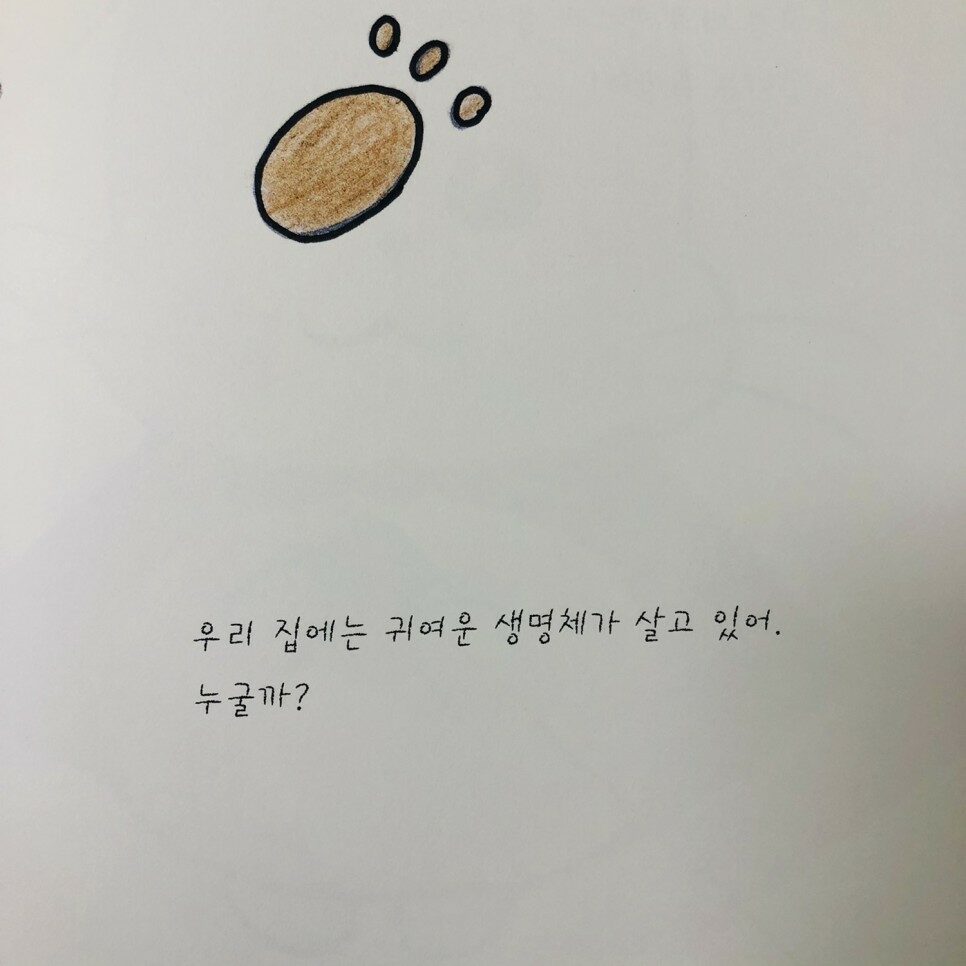 우리 집에는 귀여운 생명체가 살고 있어.
누굴까?